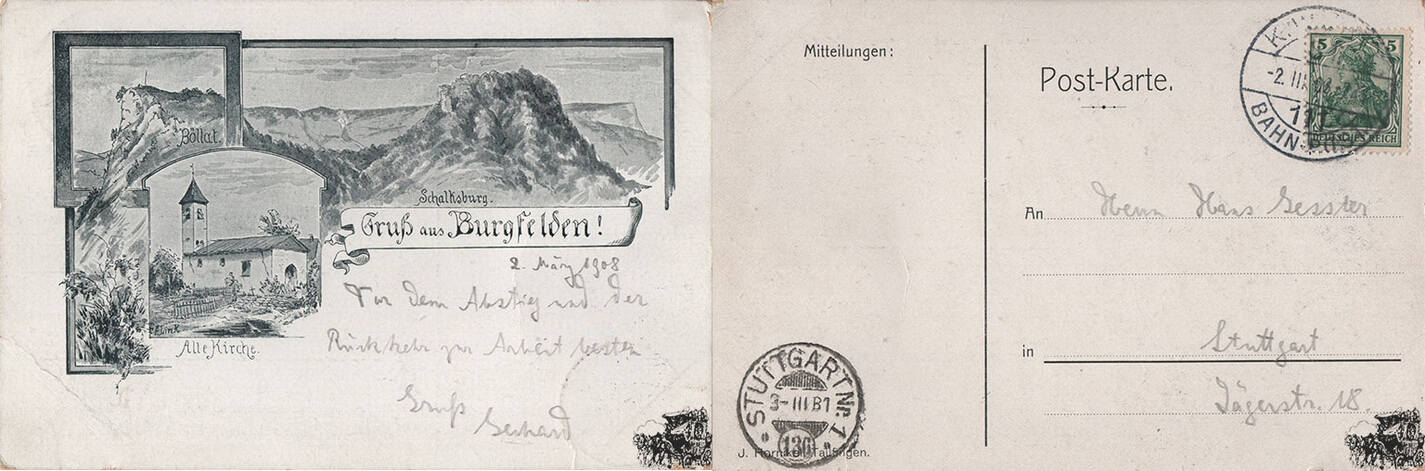 Böllat.
Schalksburg.
Gruß aus Burgfelden!
2. März 1908
Vor dem Abstieg und der
Rückkehr zur Arbeit besten
Gruß
Gerhard
Alte Kirche.
Mitteilungen:
Post-Karte.
5 5
DEUTSCHES REICH
-2. III.
BAHN-
An Herrn Hans Gessler
in Stuttgart
Jägerstr. 18.
STUTTGART Nr. 1
3-III
(136)
J. Tailfingen.